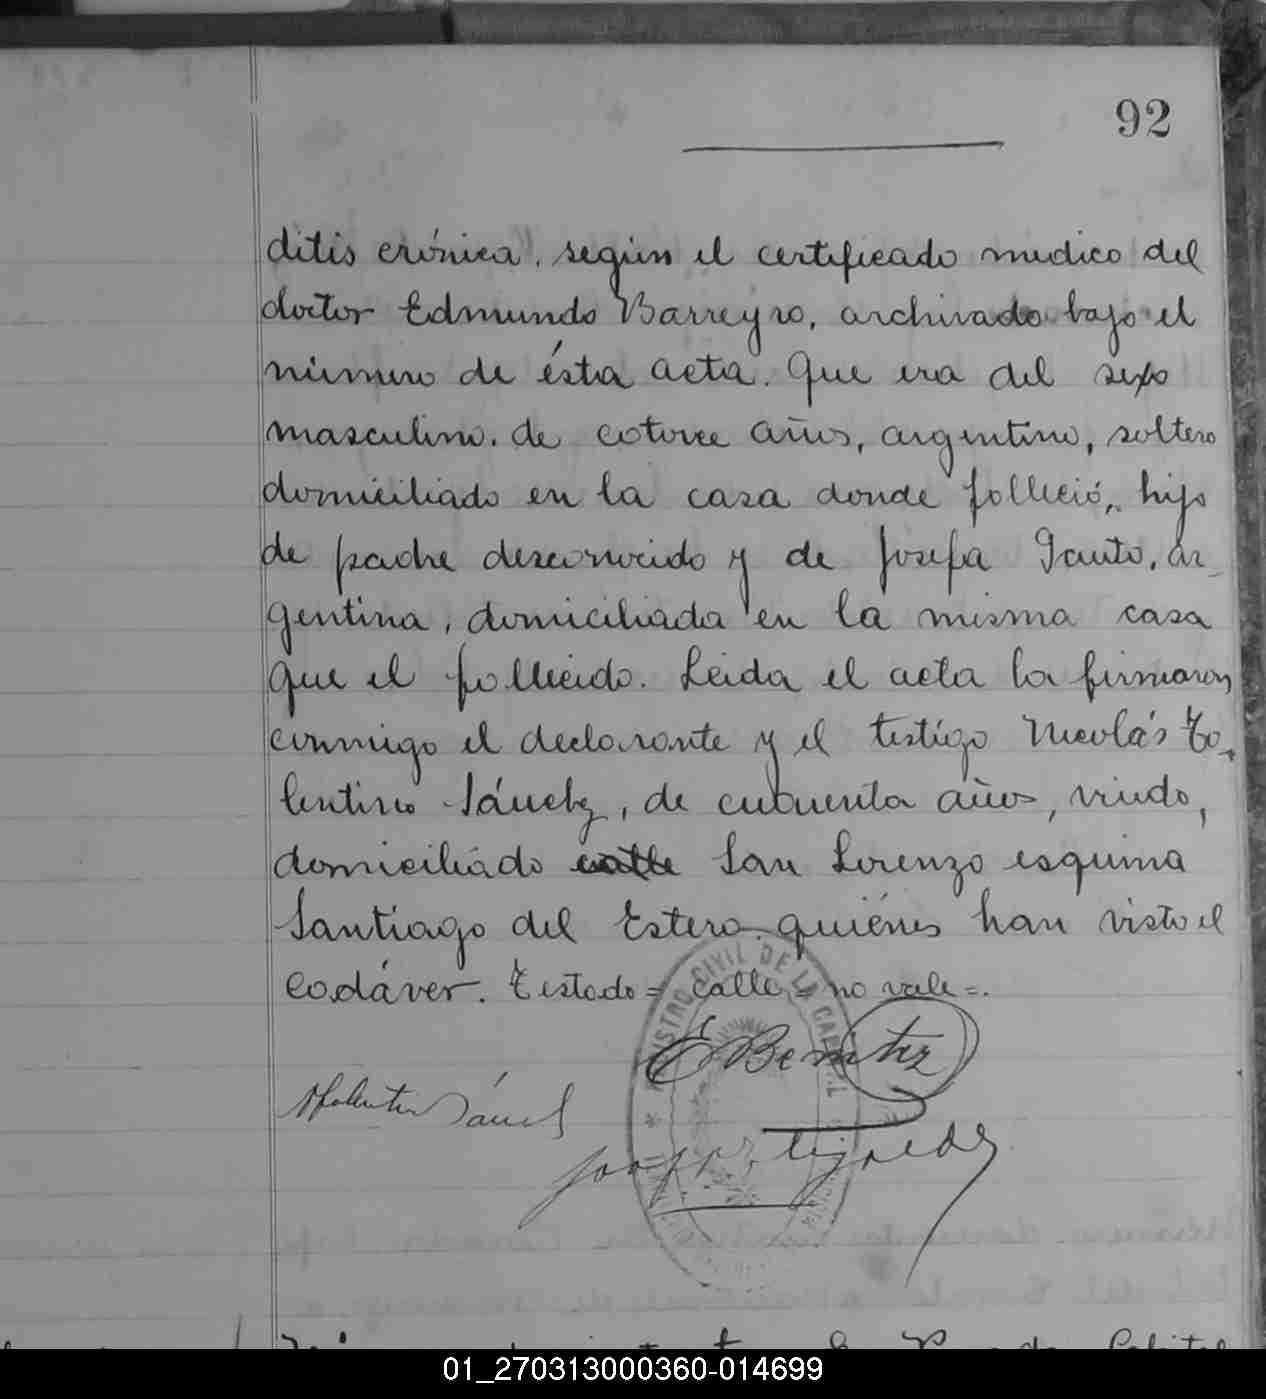 92
ditis crónica", según el certificado medico del
doctor Edmundo Barreyro, archivado bajo el
número de ésta acta. Que era del sexo
masculino, de catorce años, argentino, soltero
domiciliado en la casa donde falleció, hijo
de padre desconocido y de Josefa Gauto, ar-
gentina, domiciliada en la misma casa
que el fallecido. Leida el acta la firmaron
conmigo el declarante y el testigo Nicolás To-
lentino Sánchez, de cuarenta años, viudo,
domiciliado calle San Lorenzo esquina
Santiago del Estero, quiénes han visto el
cadáver. Testado = calle = no vale =.
REGISTRO CIVIL DE LA CAPITAL
E Benitez
NTolentino Sánch
01_270313000360-014699